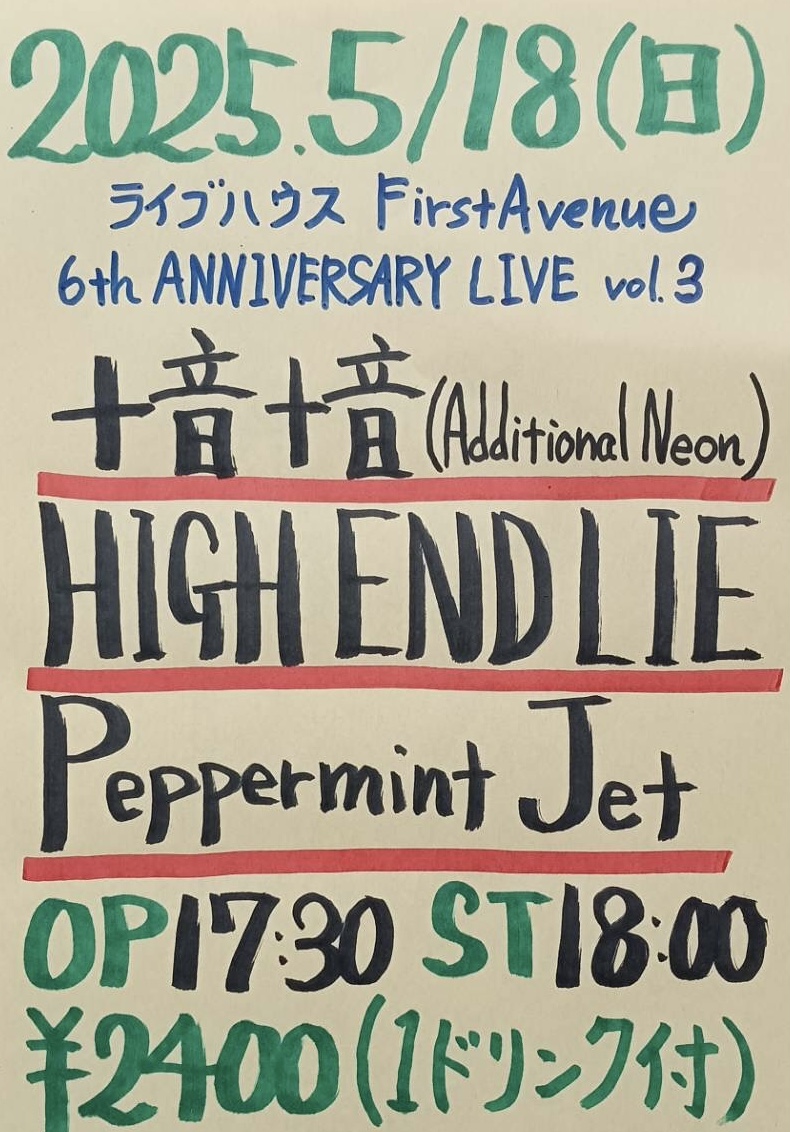 2025.5/18(日)
ライブハウス FirstAvenue
6th ANNIVERSARY LIVE vol.3
十音十音(Additional Neon)
HIGH END LIE
Peppermint Jet
OP17:30 ST18:00
¥2400(1ドリンク付)